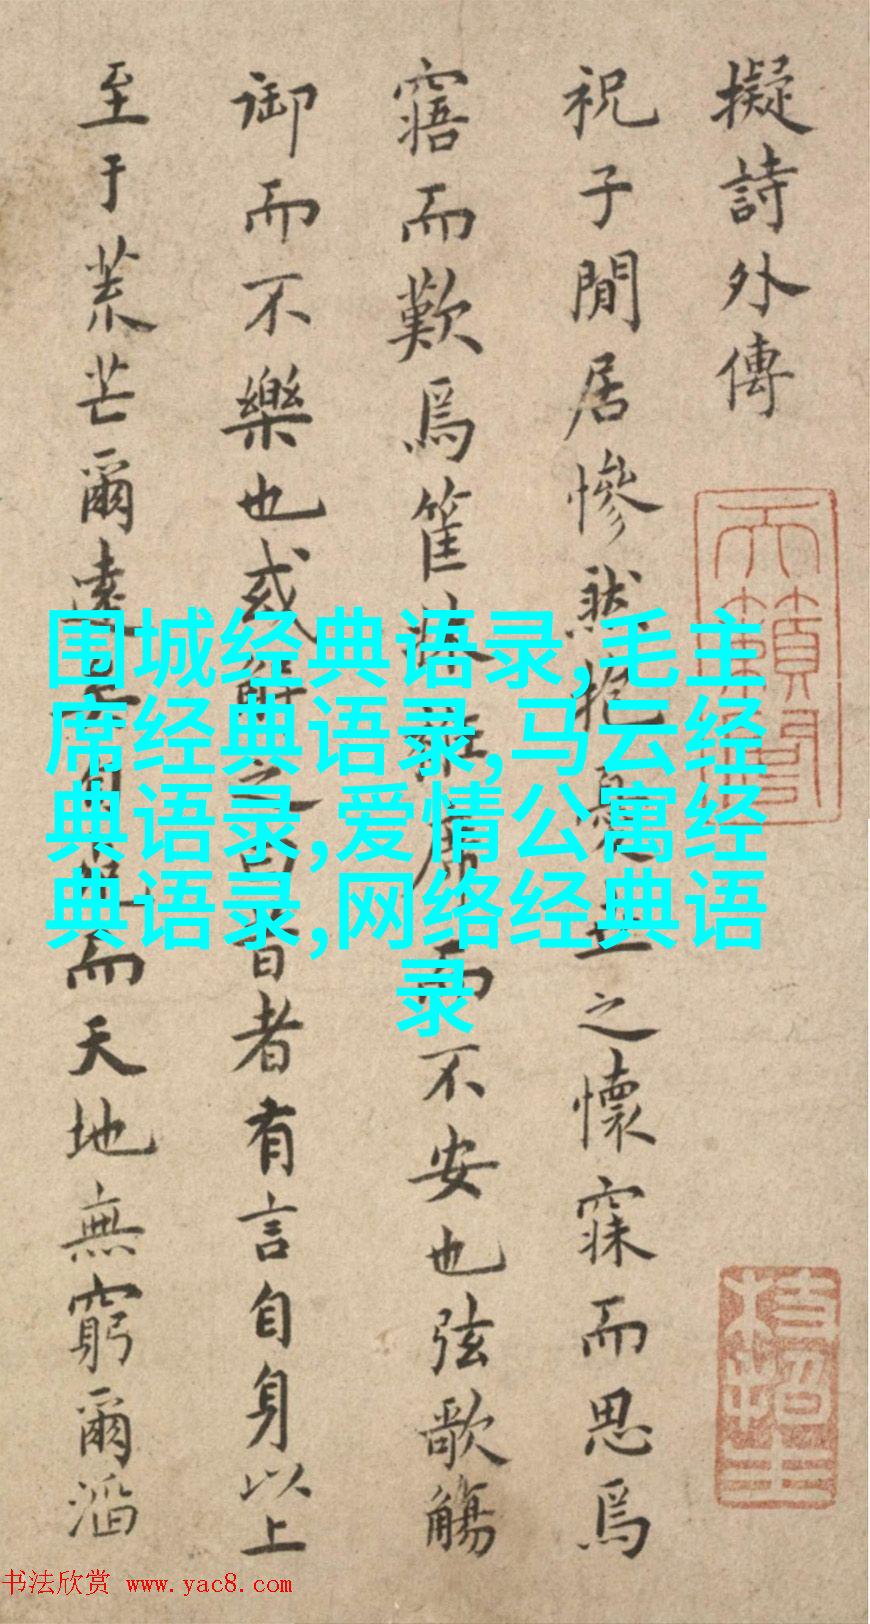 擬詩外傳
祝子閒居慘然抱憂世之懷寐而思焉
寤而歎焉筐牀席而不安也弦歌觴
御而不樂也或解之曰昔者有言自身以上
至于荒芒爾遠矣自而天地無窮爾滔
天籟閣
枝指生
围城经典语录,毛主
席经典语录,马云经
典语录,爱情公寓经
典语录,网络经典语
录
书法欣赏 www.yac8.com